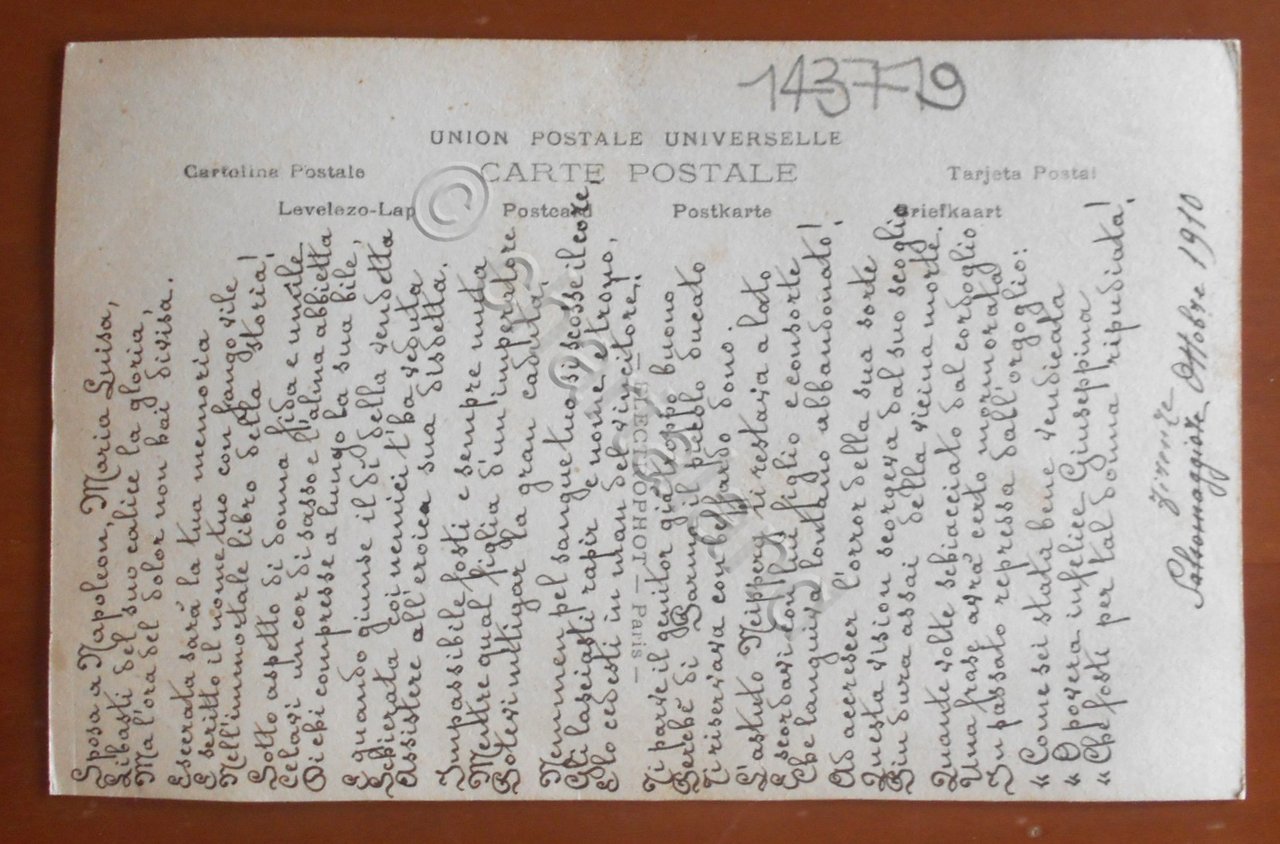 143779
UNION POSTALE UNIVERSELLE
Cartolina Postale
CARTE POSTALE
Tarjeta Postal
Levelezo-Lap
Postcard
Postkarte
Briefkaart
ELECTROPHOT — Paris —
Sposa a Napoleon, Maria Luisa,
Libasti del suo calice la gloria,
Ma l'ora del dolor non hai divisa.
Esecrata sarà la tua memoria
E scritto il nome tuo con fango vile
Nell'immortale libro della storia!
Sotto aspetto di donna fida e umile
Celavi un cor di sasso e l'alma abbietta
Di chi compresse a lungo la sua bile,
E quando giunse il dì della vendetta
Schierata coi nemici t'ha veduta
Assistere all'eroica sua disdetta.
Impassibile fosti e sempre muta
Mentre qual figlia d'un imperatore
Potevi mitigar la gran caduta.
Nemmen pel sangue tuo si scosse il core,
Gli lasciasti rapir e nome e trono,
E lo cedesti in man del vincitore!
Ti parve il genitor già troppo buono
Perchè di Parma il picciol ducato
Ti riservava con beffardo dono.
L'astuto Neipperg ti restava a lato
E scordavi con lui figlio e consorte
Che languiva lontano abbandonato!
Ad accrescer l'orror della sua sorte
Questa vision scorgeva dal suo scoglio
Più dura assai della vicina morte.
Quante volte schiacciato dal cordoglio
Una frase avrà certo mormorata
In passato repressa dall'orgoglio:
" Come sei stata bene vendicata
" O povera infelice Giuseppina
" Che fosti per tal donna ripudiata!
Firenze
Salsomaggiore Ottobre 1910
©